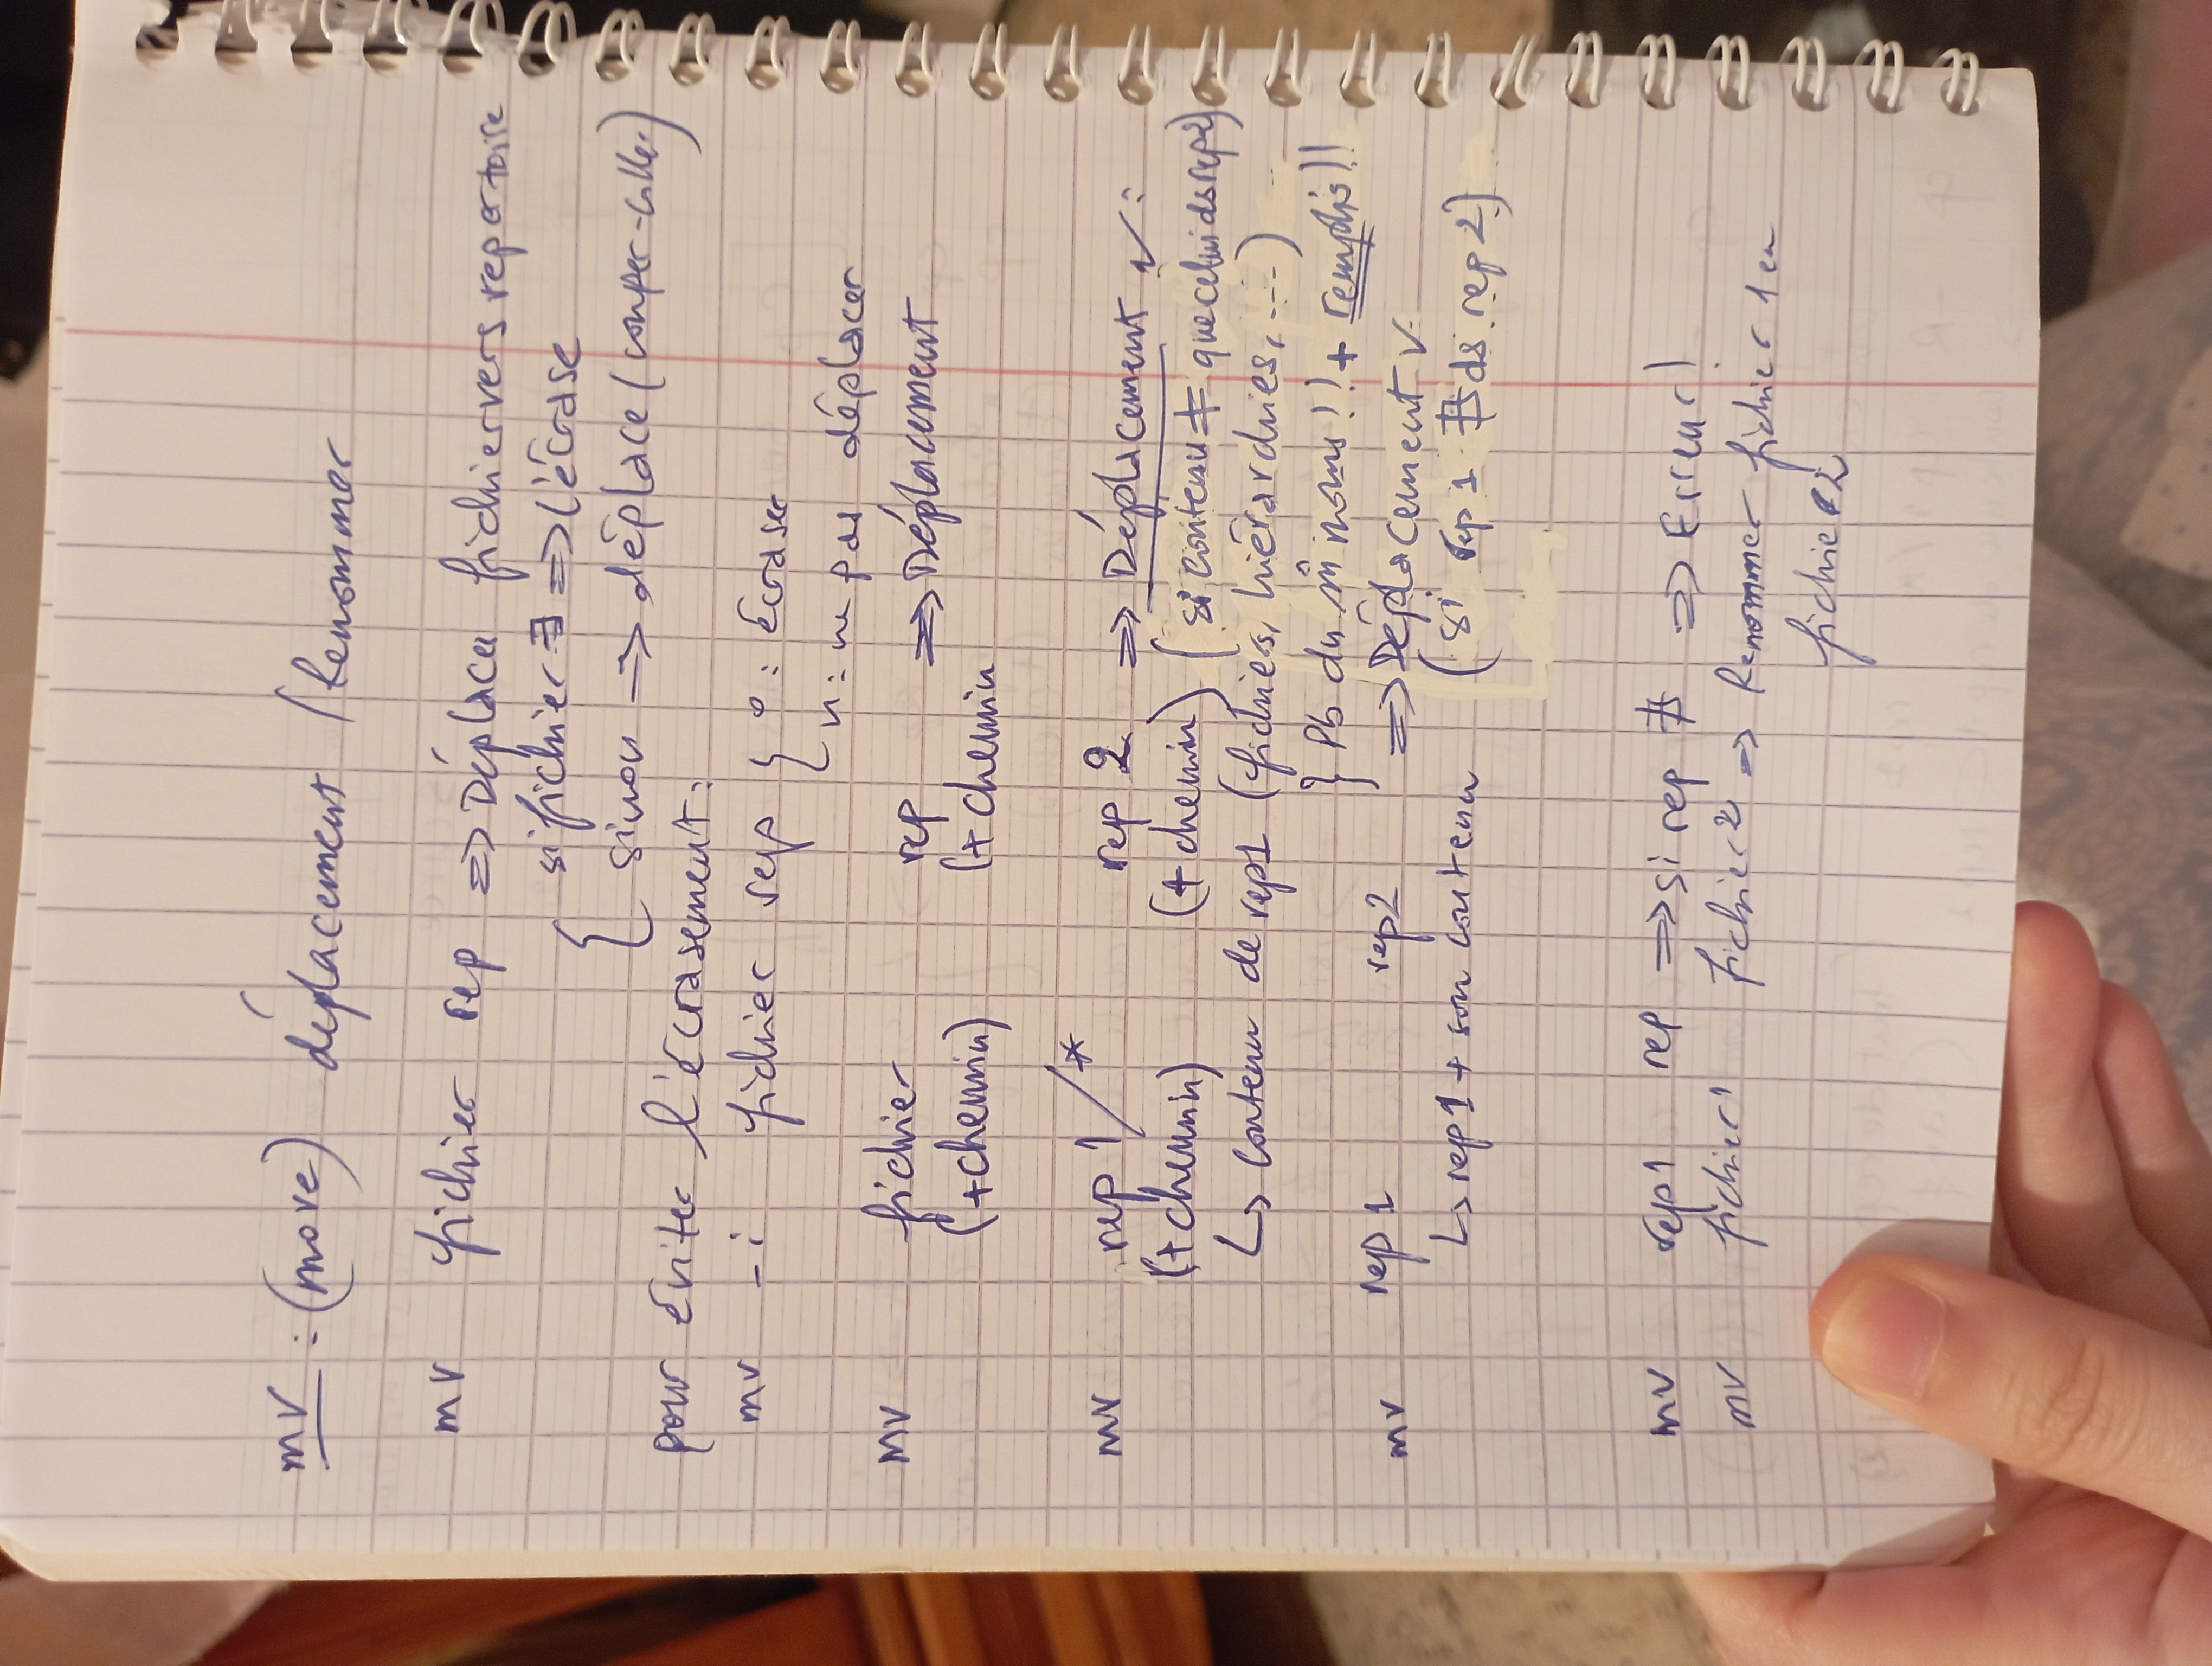 mv : (move) déplacement / Renommer
mv fichier rep => Déplacer fichier vers repertoire
si fichier ∃ => l'écrase
sinon => déplace (couper-coller)
pour éviter l'écrasement :
mv -i fichier rep { o : écraser
n : ne pas déplacer
mv fichier rep => Déplacement
(+chemin) (+ chemin
mv rep 1/* rep 2 => Déplacement ✓ :
(+chemin) (+ chemin) (si contenu ≠ que celui ds rep2)
↳ contenu de rep1 (fichiers, hiérarchies, ...)
} Pb du m̂ noms !! + remplis !!
mv rep1 rep2 => Déplacement ✓
↳ rep1 + son contenu (si rep1 ∄ ds rep2)
mv rep1 rep => si rep ∄ => Erreur !
mv fichier1 fichier2 => Renommer fichier 1 en
fichier2